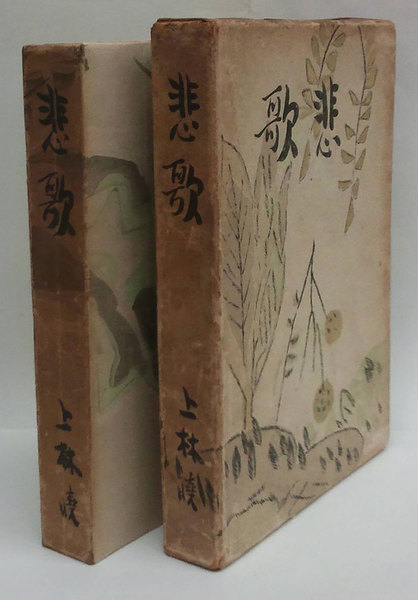 悲歌
上林暁
悲歌
上林暁
悲歌